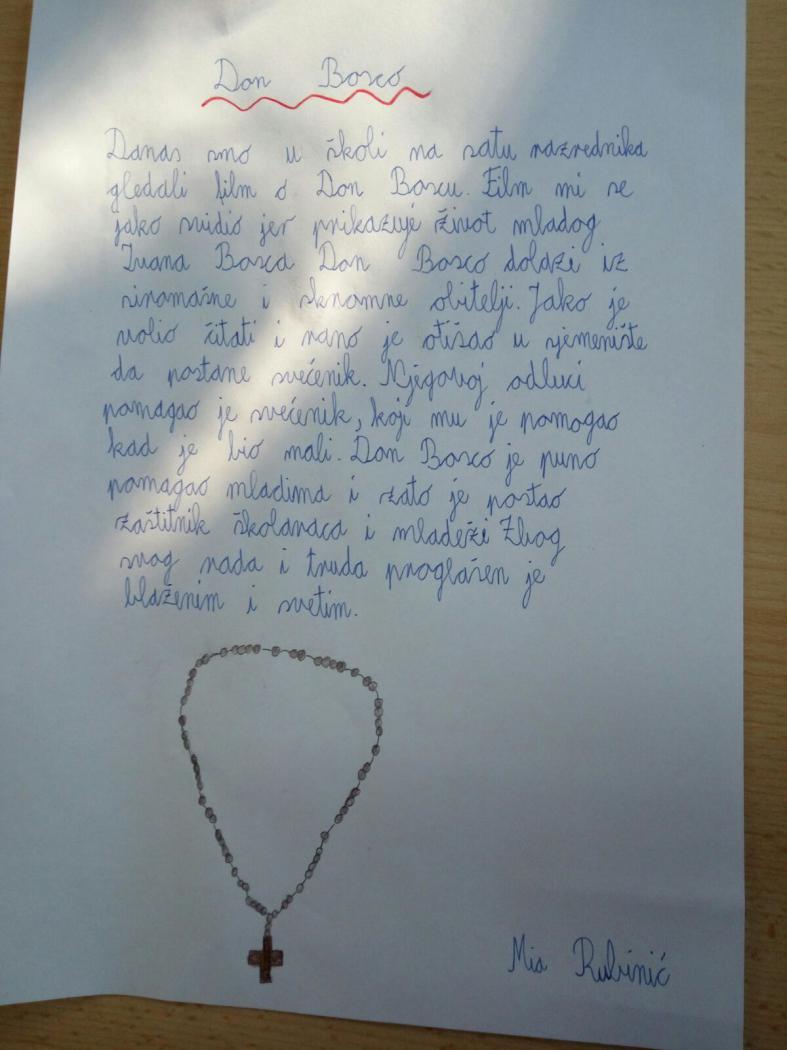 Don Bosco
Danas smo u školi na satu razrednika
gledali film o Don Boscu. Film mi se
jako svidio jer prikazuje život mladog
Ivana Bosca Don Bosco dolazi iz
siromašne i skromne obitelji. Jako je
volio čitati i rano je otišao u sjemenište
da postane svećenik. Njegovoj odluci
pomagao je svećenik, koji mu je pomogao
kad je bio mali. Don Bosco je puno
pomagao mladima i zato je postao
zaštitnik školaraca i mladeži Zbog
svog rada i truda proglašen je
blaženim i svetim.
Mia Rubinić